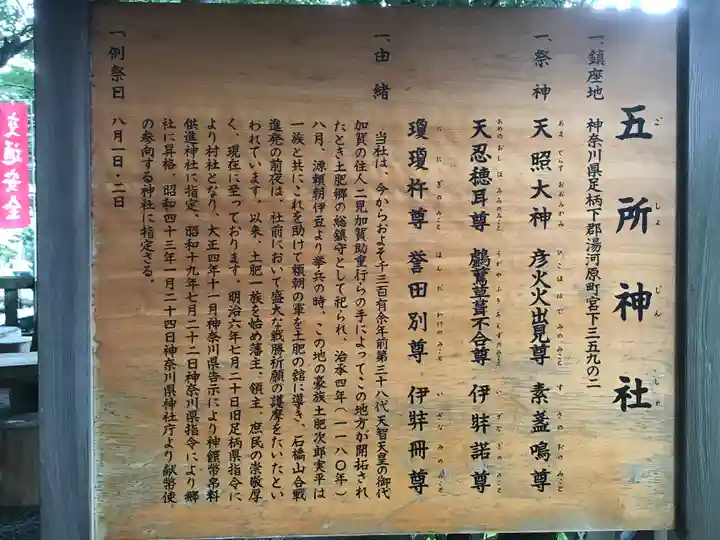 五所神社
ごしょじんしゃ
一、鎮座地　神奈川県足柄下郡湯河原町宮下三五九の二
一、祭神　天照大神　彦火火出見尊　素盞嗚尊
あまてらすおおみかみ　ひこほほでみのみこと　すさのおのみこと
天忍穂耳尊　鸕鶿草葺不合尊　伊弉諾尊
あめのおしほみみのみこと　うがやふきあえずのみこと　いざなぎのみこと
瓊瓊杵尊　誉田別尊　伊弉冊尊
ににぎのみこと　ほんだわけのみこと　いざなみのみこと
一、由緒
当社は、今からおよそ千三百有余年前第三十八代天智天皇の御代
加賀の住人二見加賀助重行らの手によってこの地方が開拓され
たとき土肥郷の総鎮守として祀られ、治承四年（一一八〇年）
八月、源頼朝伊豆より挙兵の時、この地の豪族土肥次郎実平は
一族と共にこれを助けて頼朝の軍を土肥の館に導き、石橋山合戦
進発の前夜は、社前において盛大な戦勝祈願の護摩をたいたとい
われています。以来、土肥一族を始め藩主、領主、庶民の崇敬厚
く、現在に至っております。明治六年七月二十日旧足柄県指令に
より村社となり、大正四年十一月神奈川県告示により神饌幣帛料
供進神社に指定、昭和十九年七月二十二日神奈川県指令により郷
社に昇格、昭和四十三年一月二十四日神奈川県神社庁より献幣使
の参向する神社に指定さる。
一、例祭日　八月一日・二日
交通安全